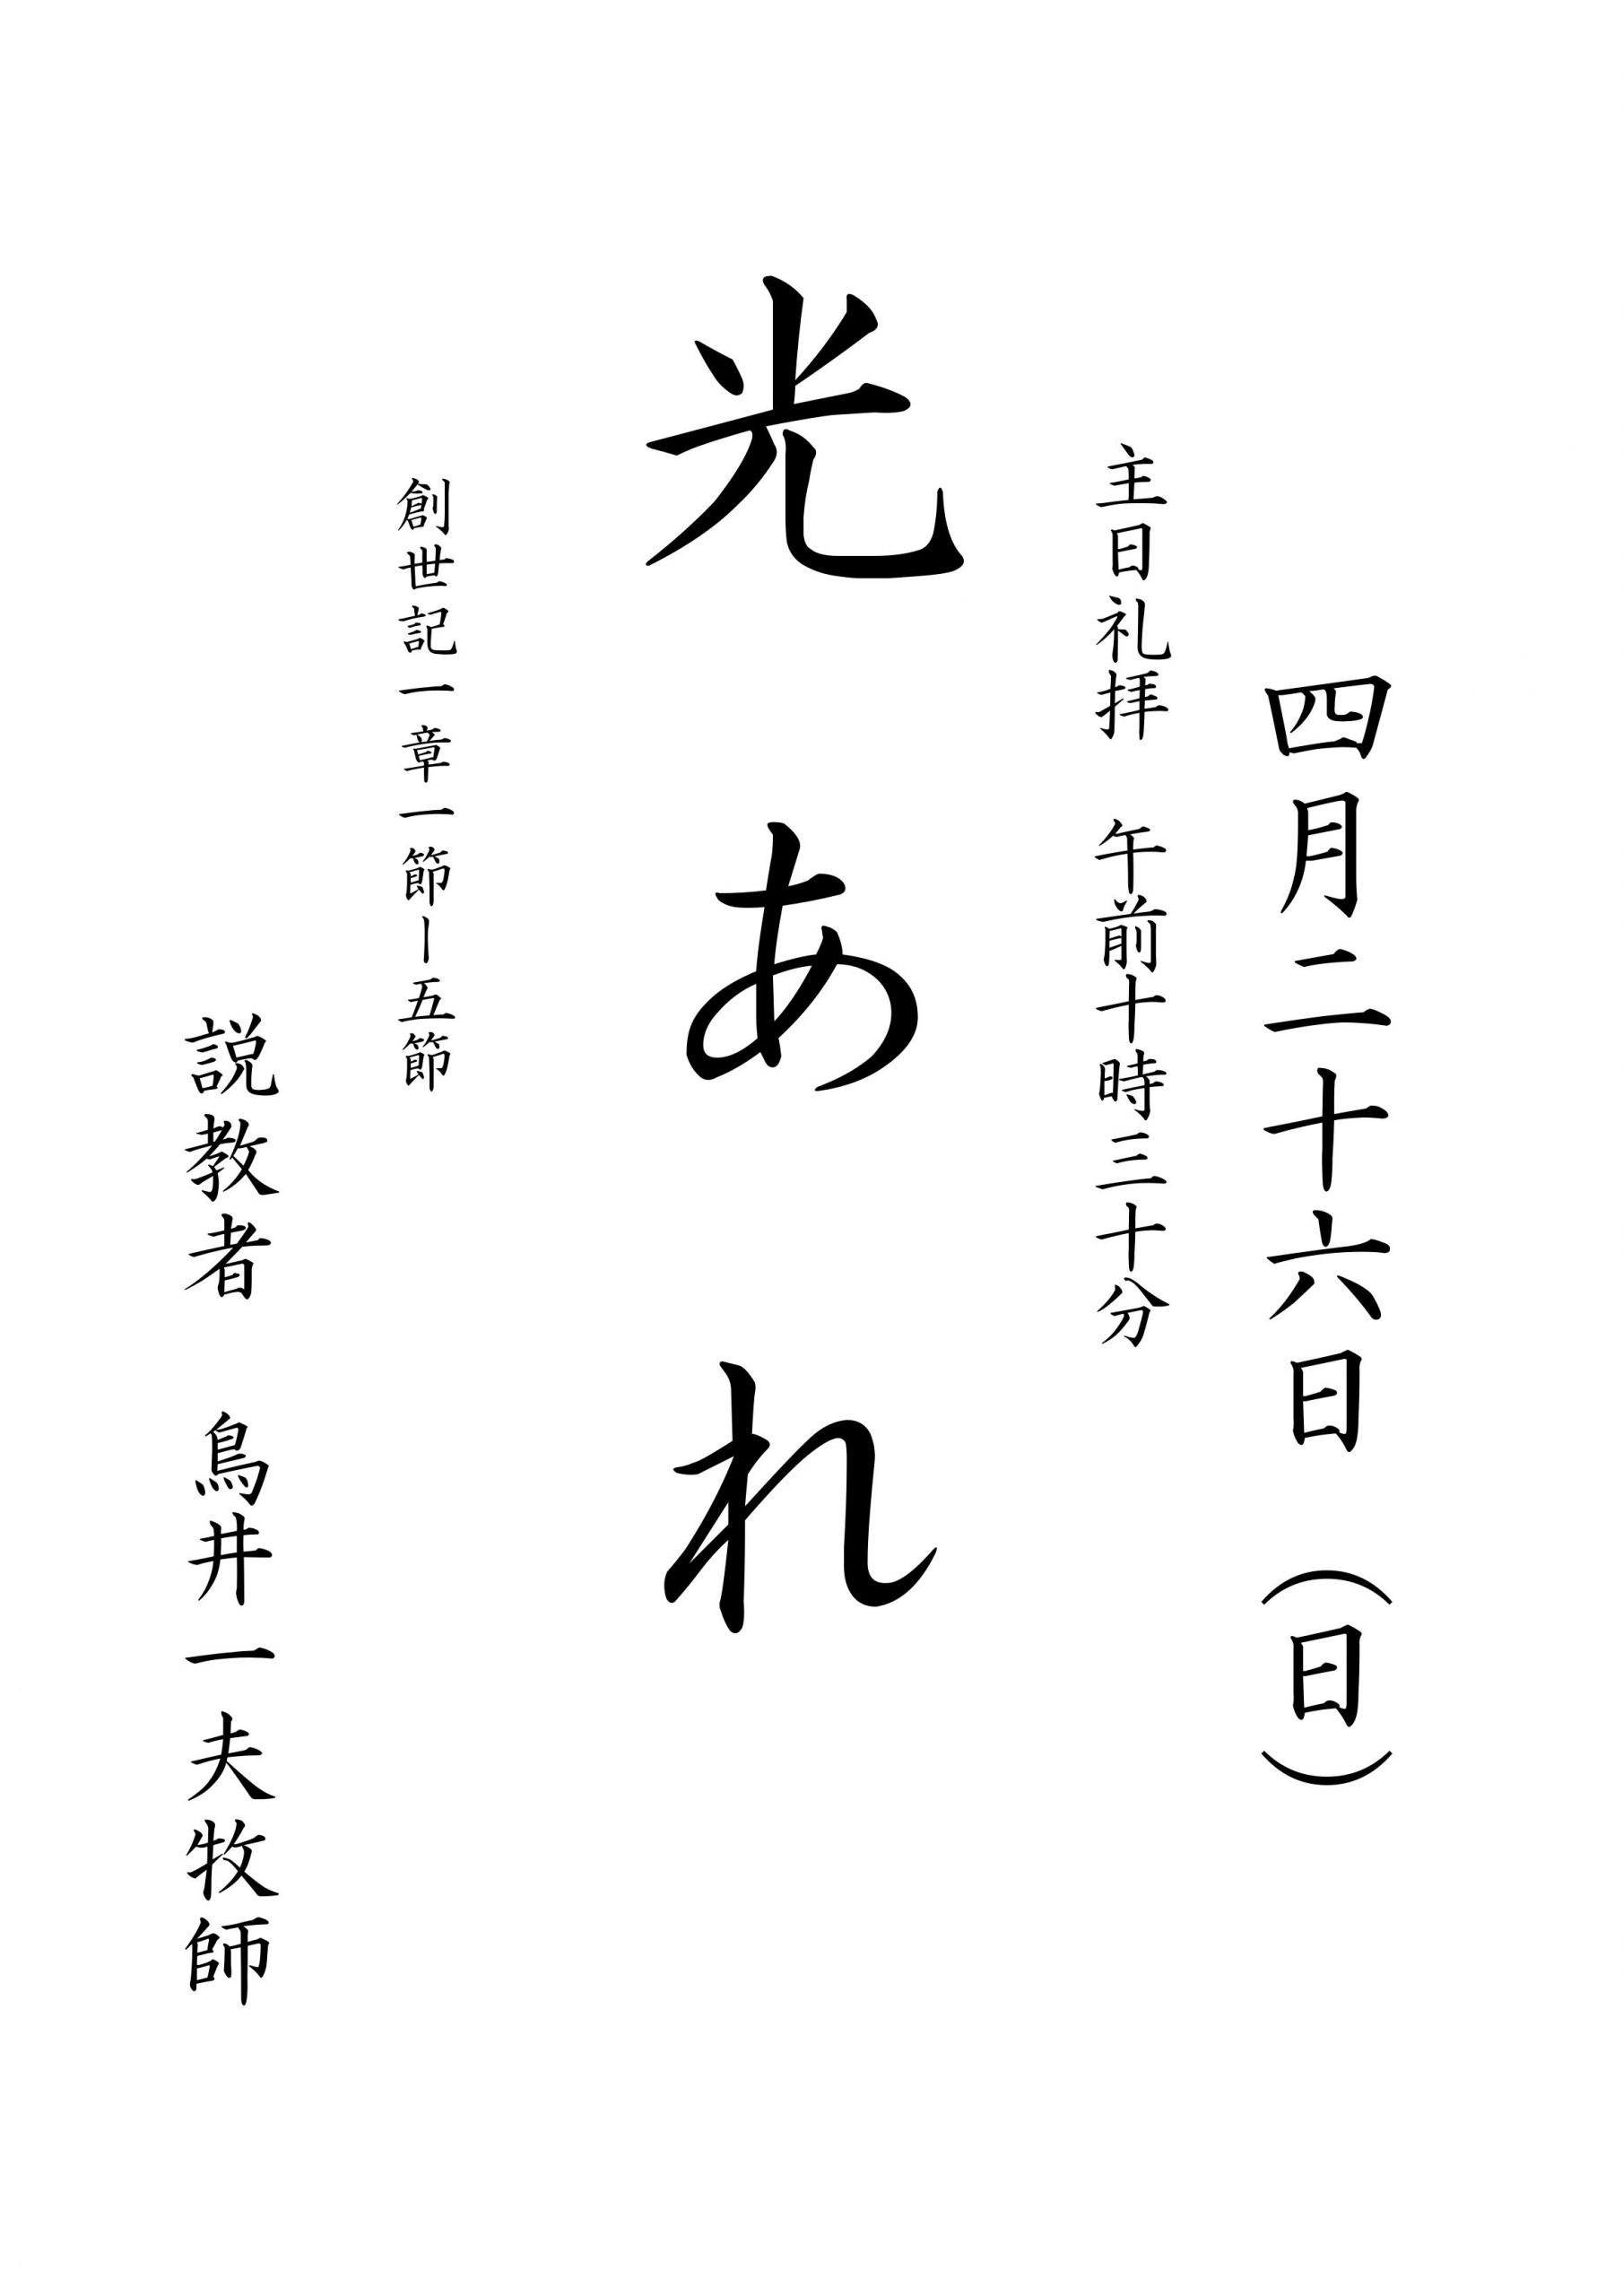 四月二十六日（日）
主日礼拝　午前十時三十分
光あれ
創世記一章一節－五節
説教者　鳥井一夫牧師